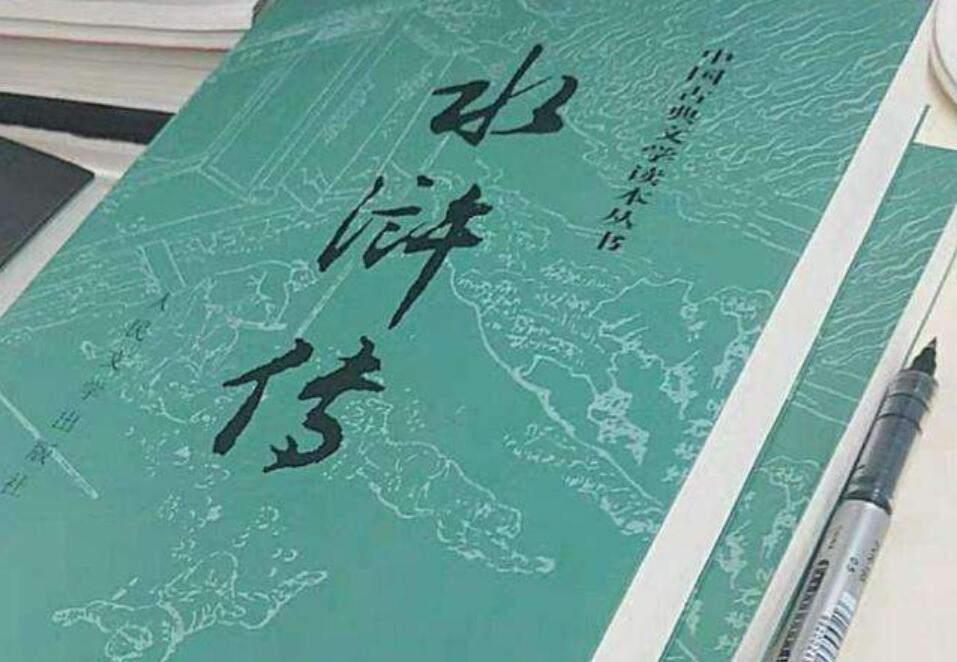 中国古典文学读本丛书
水浒传
人民文学出版社
0.5